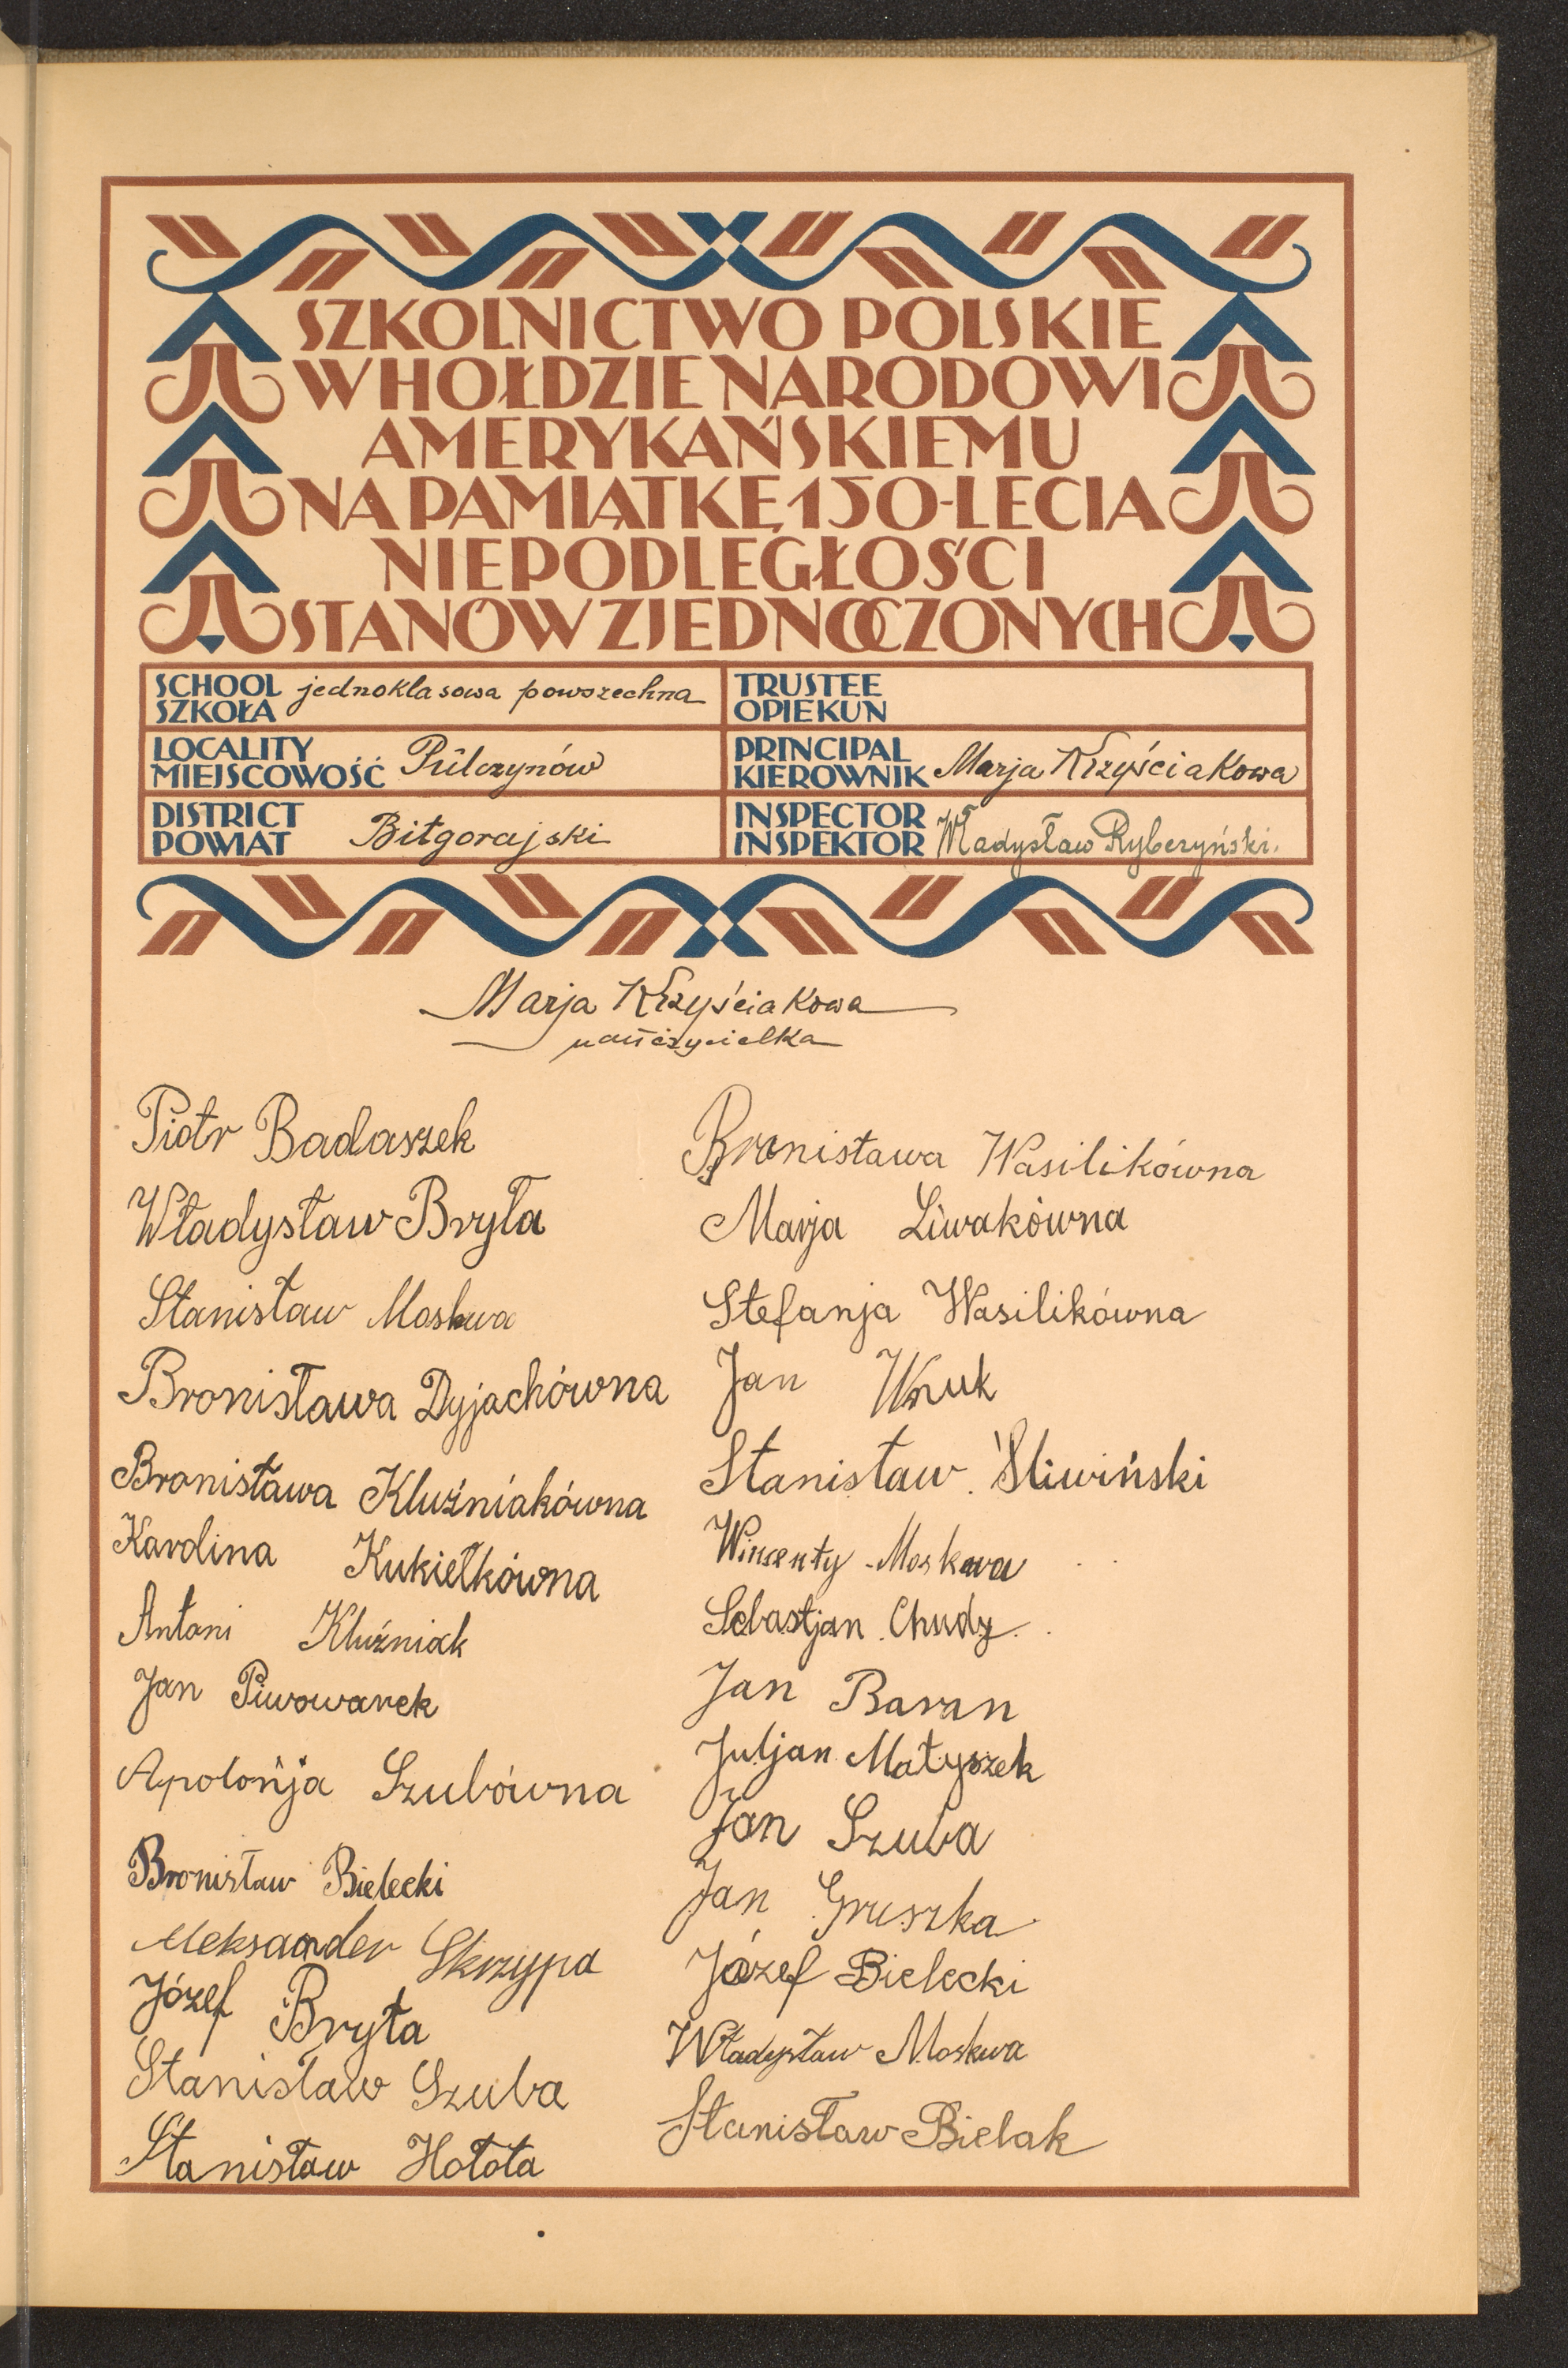 SZKOLNICTWO POLSKIE
W HOŁDZIE NARODOWI
AMERYKAŃSKIEMU
NA PAMIĄTKĘ 150-LECIA
NIEPODLEGŁOŚCI
STANÓW ZJEDNOCZONYCH
SCHOOL
SZKOŁA
jednoklasowa powszechna
TRUSTEE
OPIEKUN
LOCALITY
MIEJSCOWOŚĆ
Pülczynów
PRINCIPAL
KIEROWNIK
Marja Krzyściakowa
DISTRICT
POWIAT
Biłgorajski
INSPECTOR
INSPEKTOR
Władysław Ryberzyński.
Marja Krzyściakowa
nauczycielka
Piotr Badaszek
Władysław Bryła
Stanisław Moskwa
Bronisława Dyjachówna
Bronisława Kluźniakówna
Karolina Kukiełkówna
Antoni Kluźniak
Jan Piwowarek
Apolońja Szubówna
Bronisław Bielecki
Aleksaander Skrzypa
Józef Bryła
Stanisław Szuba
Stanisław Hołota
Bronisława Wasilikówna
Marja Liwakówna
Stefanja Wasilikówna
Jan Wnuk
Stanisław Śliwiński
Wincenty Moskwa
Sebastjan Chudy
Jan Baran
Juljan Matyszek
Jan Szuba
Jan Gruszka
Józef Bielecki
Władysław Moskwa
Stanisław Bielak